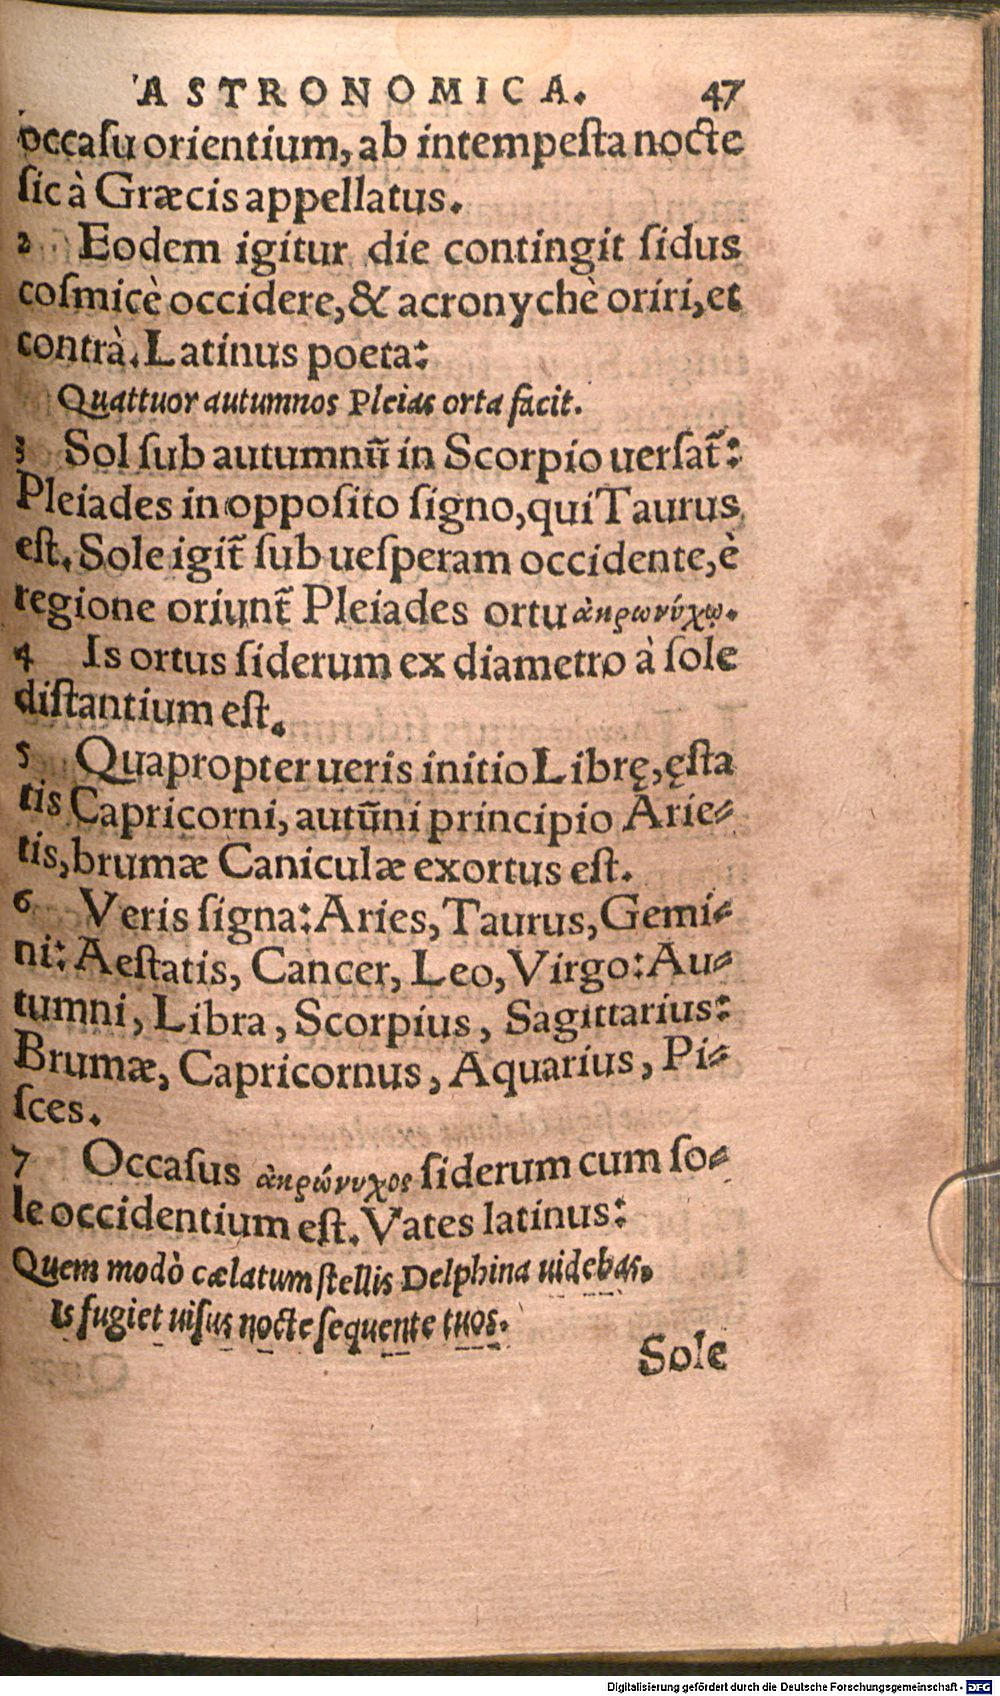 ASTRONOMICA. 47
occaſu orientium, ab intempeſta nocte
ſic à Græcis appellatus.
2 Eodem igitur die contingit ſidus
coſmicè occidere, & acronychè oriri, et
contrà. Latinus poeta:
Quattuor autumnos Pleias orta facit.
3 Sol ſub autumnū in Scorpio uerſat᷑:
Pleiades in oppoſito ſigno, qui Taurus
eſt. Sole igit᷑ ſub ueſperam occidente, è
regione oriunt᷑ Pleiades ortu ἀκρωνύχῳ.
4 Is ortus ſiderum ex diametro à ſole
diſtantium eſt.
5 Quapropter ueris initio Librę, ęſta
tis Capricorni, autūni principio Arie⸗
tis, brumæ Caniculæ exortus eſt.
6 Veris ſigna: Aries, Taurus, Gemi⸗
ni: Aeſtatis, Cancer, Leo, Virgo: Au⸗
tumni, Libra, Scorpius, Sagittarius:
Brumæ, Capricornus, Aquarius, Pi⸗
ſces.
7 Occaſus ἀκρώνυχος ſiderum cum ſo⸗
le occidentium eſt. Vates latinus:
Quem modò cælatum ſtellis Delphina uidebas,
Is fugiet uiſus nocte ſequente tuos.
Sole
Digitalisierung gefördert durch die Deutsche Forschungsgemeinschaft - DFG